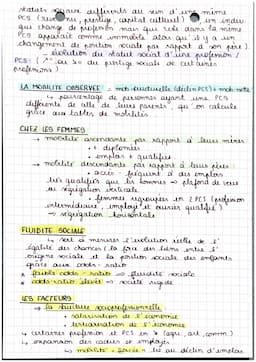 statuts sociaux différents au sein d'une même
PCS (revenus, prestige, capital culturel) un indiv
qui change de profession mais qui reste dans la même
PCS apparaît comme immobile alors qu'il y a un
changement de position sociale par rapport à son père).
évolution du statut social d'une profession /
PCS : ( du prestige social de certaines
professions)
LA MOBILITÉ OBSERVÉE = mob structurelle (déclin PCS) + mob nette
↳ pourcentage de personnes ayant une PCS
différente de celle de leurs parents, qu'on calcule
grâce aux tables de mobilités.
CHEZ LES FEMMES
→ mobilité ascendante par rapport à leurs mères
+ diplômées
+ emplois + qualifiés
→ mobilité descendante par rapport à leurs pères :
- accès - fréquent à des emplois
très qualifiés que les hommes → plafond de verre
ou ségrégation verticale
- femmes regroupées in 2 PCS (profession
intermédiaire, employé et ouvrier qualifié)
→ ségrégation horizontale
FLUIDITÉ SOCIALE
↳ sert à mesurer l'évolution réelle de l'
égalité des chances (la force des liens entre l'
origine sociale et la position sociale des enfants
grâce aux odds-ratio
* faible odds-ratio → fluidité sociale
* odds-ratio élevé → société rigide
LES FACTEURS
↳ la structure socioprofessionnelle
- salarisation de l'économie
- tertiarisation de l'économie
↳ certaines profession et PCS in (agri, art, comm)
↳ expansion des cadres et employés
↳ mobilité liée au déclin d'emplois